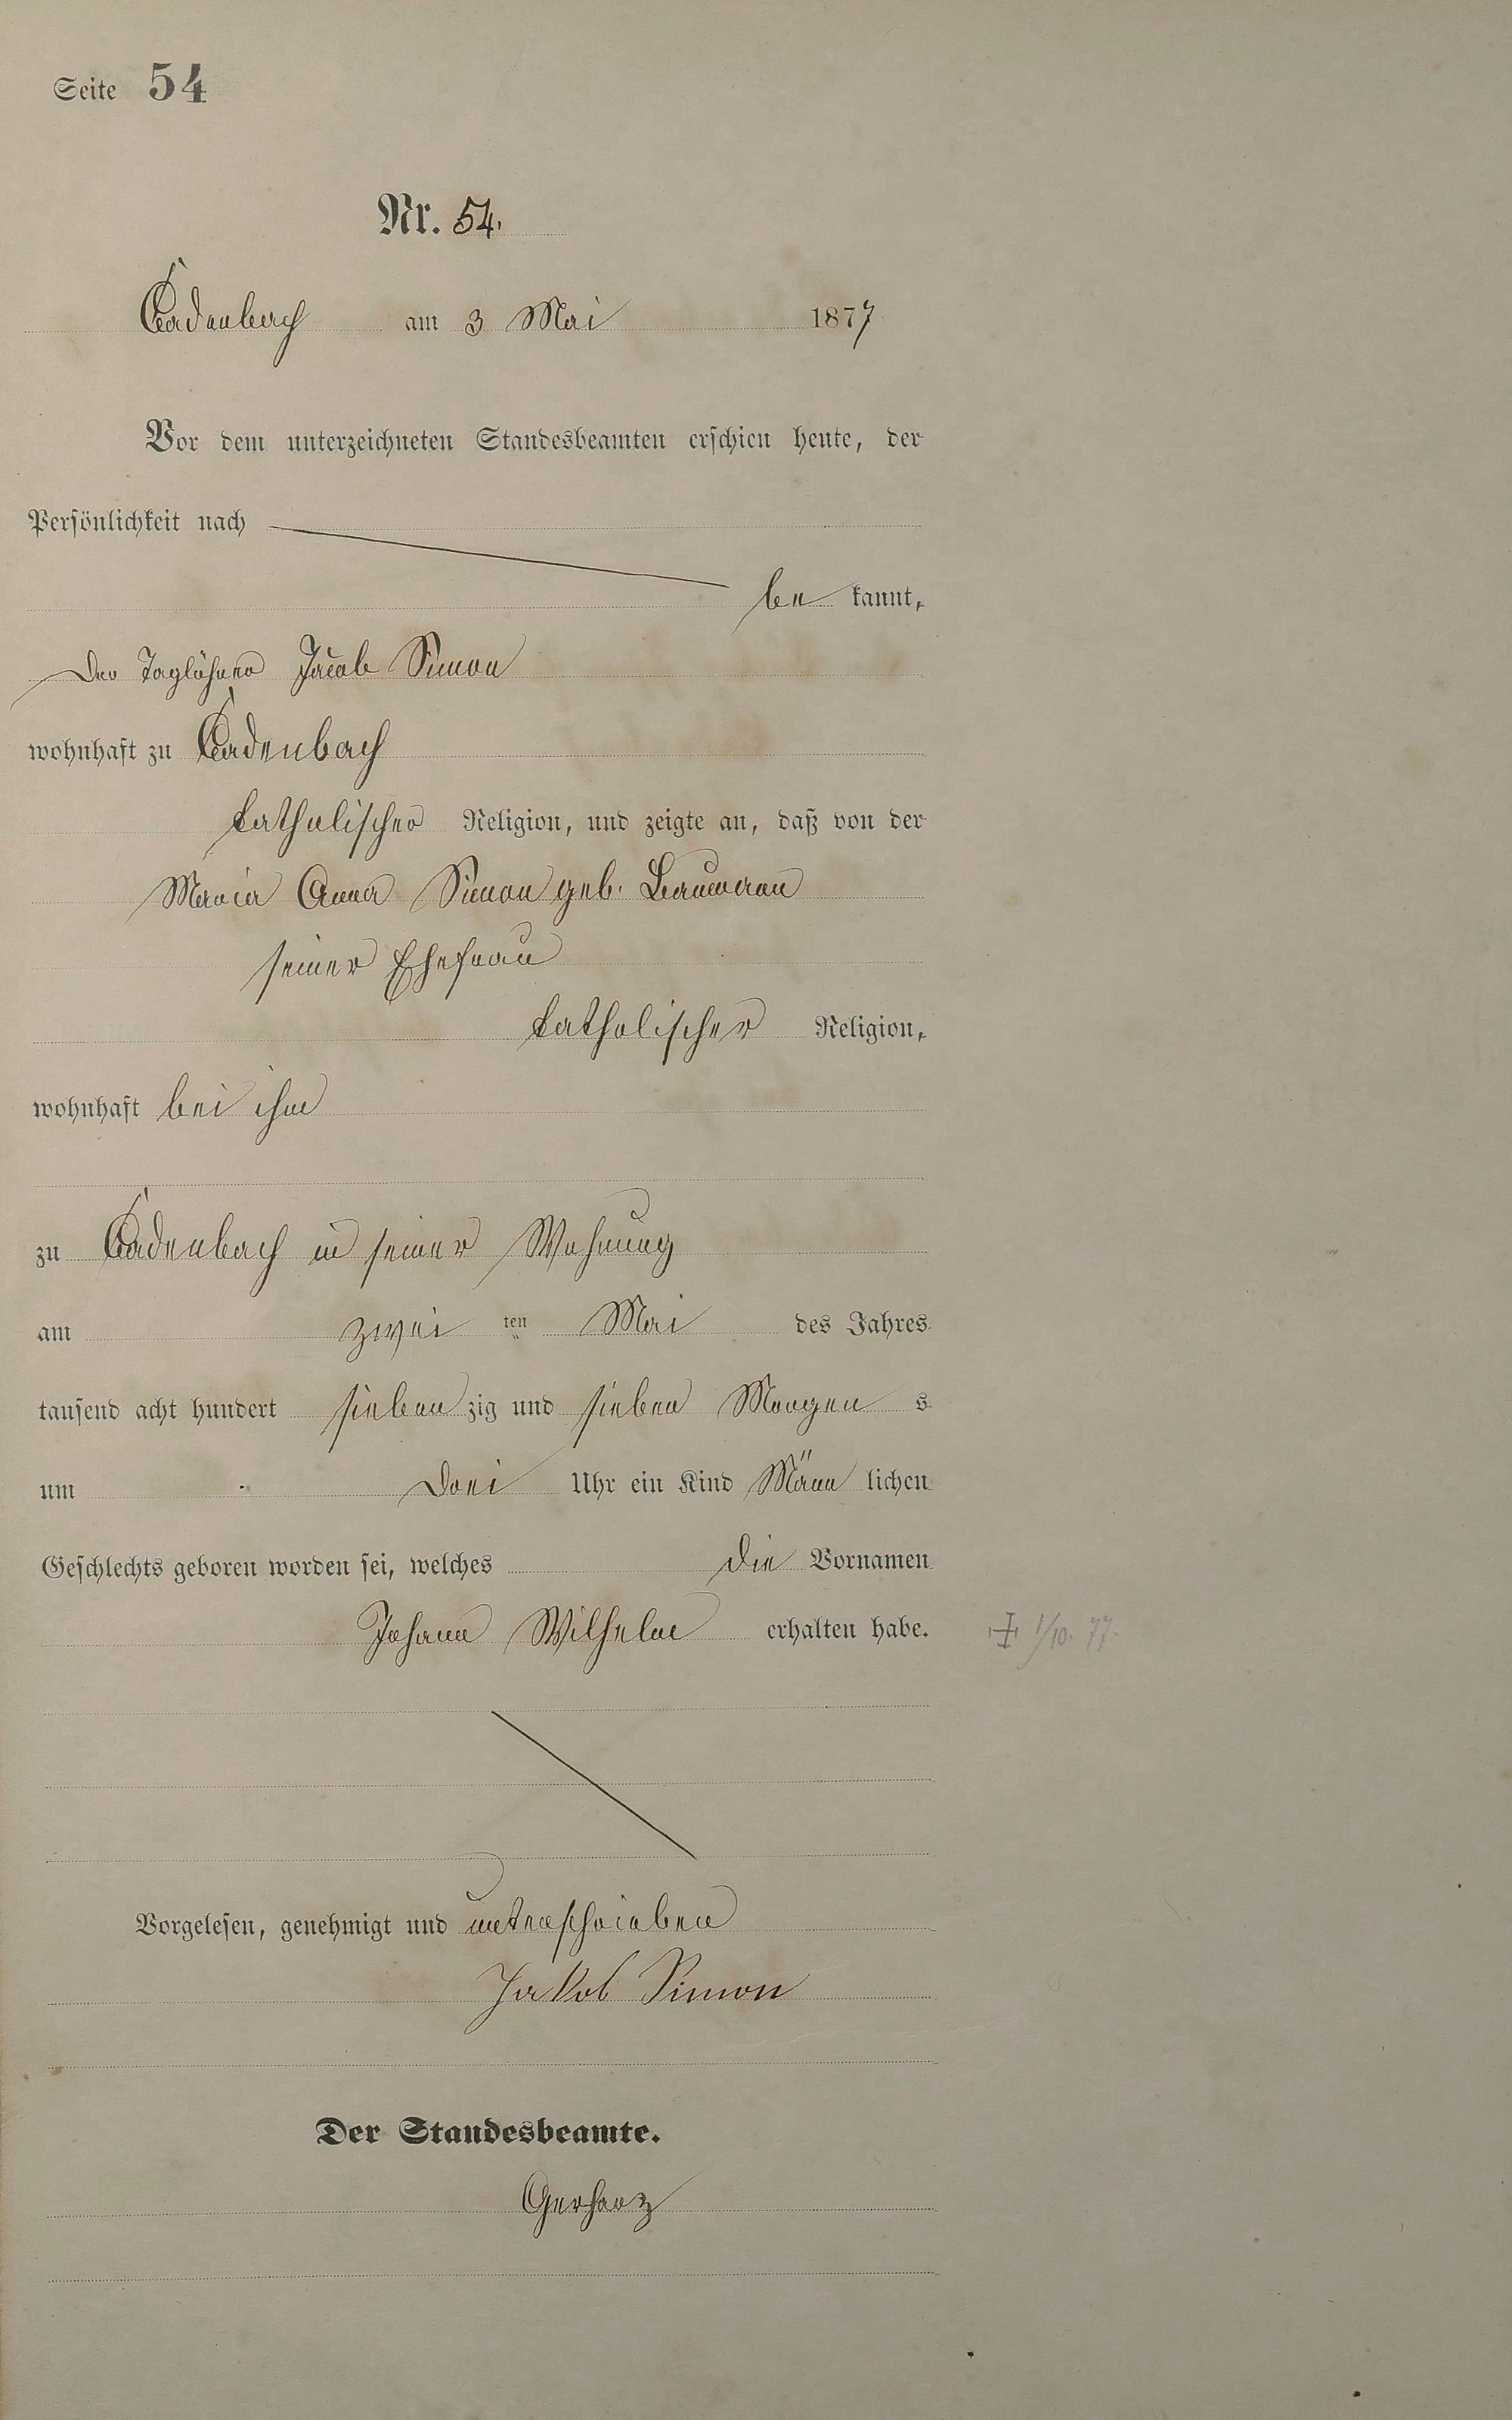 Seite 54
Nr. 54.
Cadenbach am 3 Mai 1877
Vor dem unterzeichneten Standesbeamten erschien heute, der
Persönlichkeit nach
be kannt,
Der Taglöhner Jacob Simon
wohnhaft zu Cadenbach
katholischer Religion, und zeigte an, daß von der
Maria Anna Simon geb.
seiner Ehefrau
katholischer Religion,
wohnhaft bei ihm
zu Cadenbach in seiner Wohnung
am zwei ten Mai des Jahres
tausend acht hundert sieben zig und sieben Morgen s
um Drei Uhr ein Kind Männ lichen
Geschlechts geboren worden sei, welches die Vornamen
Johann Wilhelm erhalten habe. 1/10. 77.
Vorgelesen, genehmigt und unterschrieben
Jakob Simon
Der Standesbeamte.
Gerharz